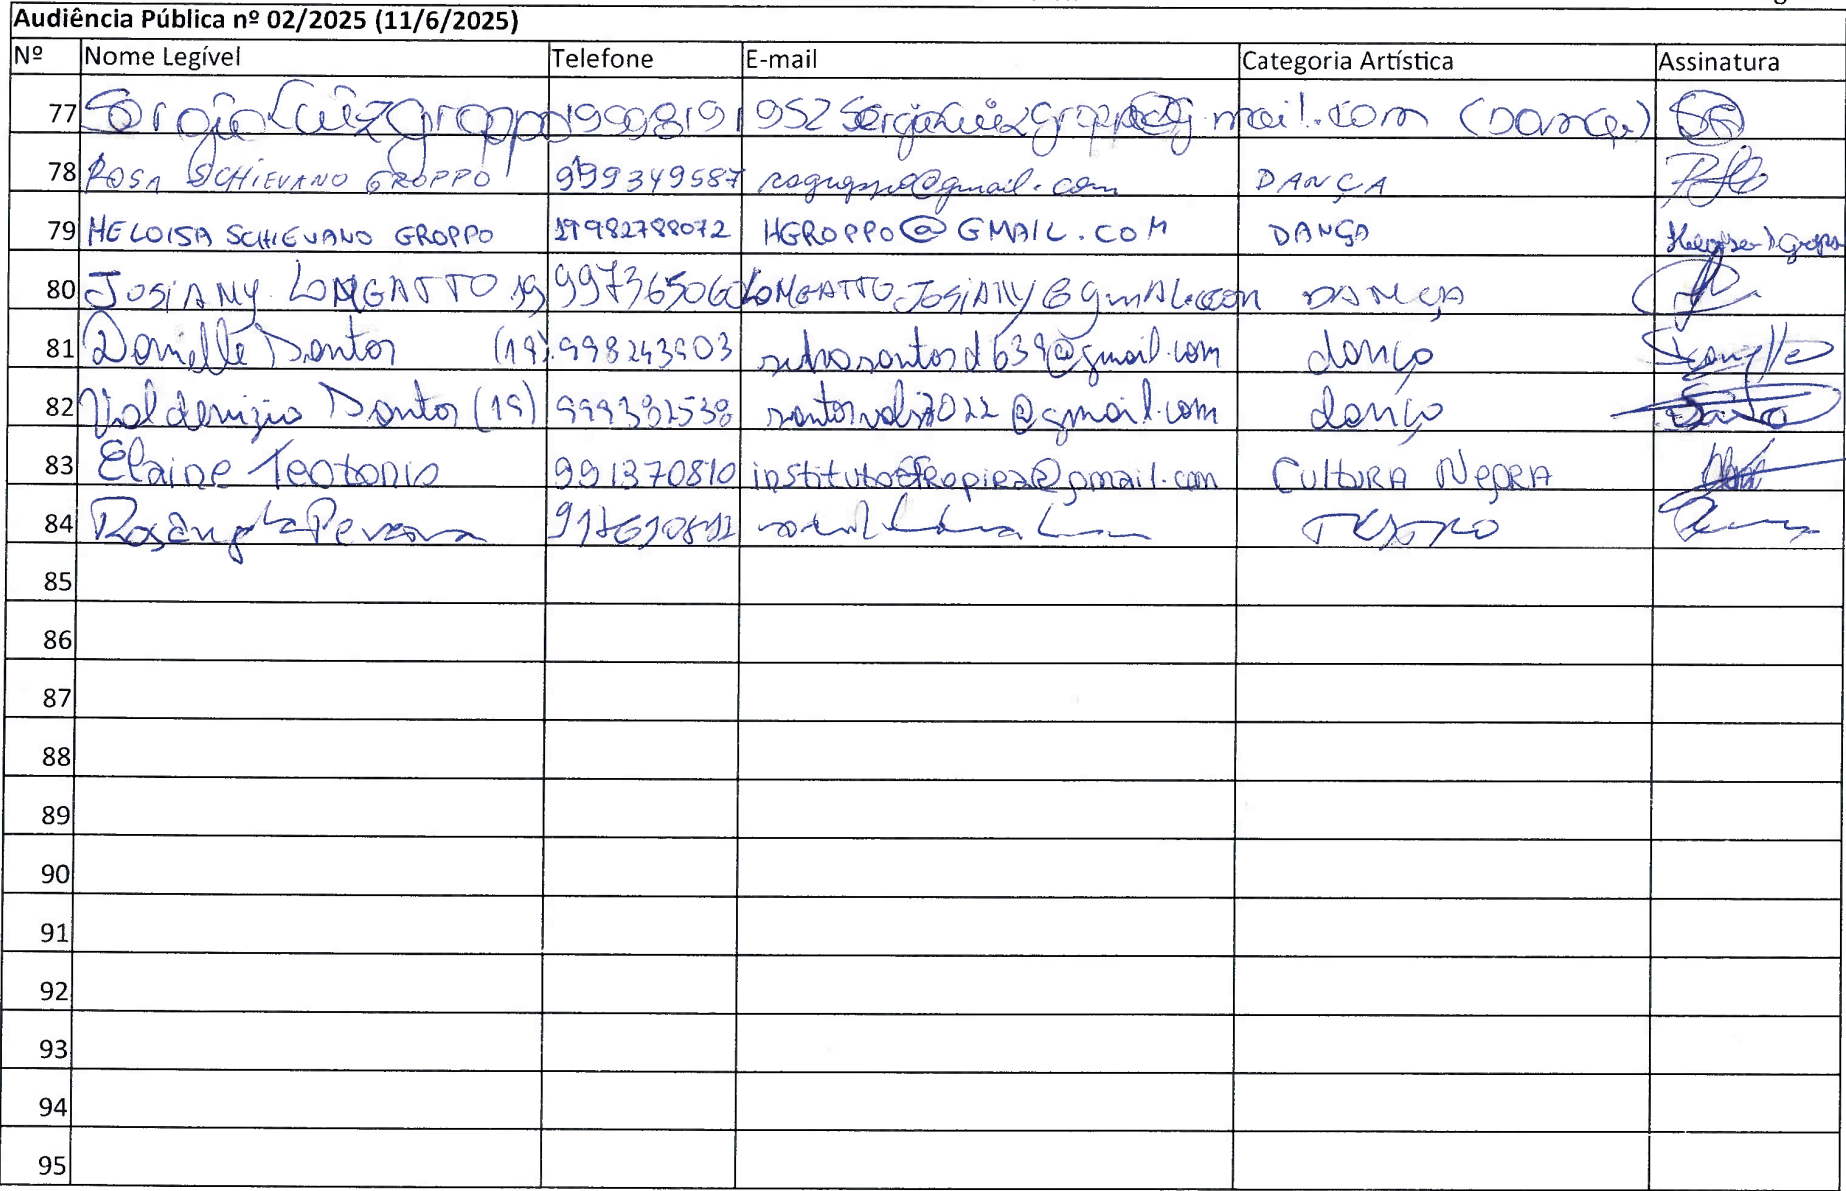 Audiência Pública nº 02/2025 (11/6/2025)
Nº Nome Legível Telefone E-mail Categoria Artística Assinatura
77 Sergio Luiz Groppo 19998191952 Sergioluizgroppo@gmail.com (Dança) SG
78 ROSA SCHIEVANO GROPPO 999349587 @gmail.com DANÇA
79 HELOISA SCHIEVANO GROPPO 19982788072 HGROPPO@GMAIL.COM DANÇA
80 JOSIANY LONGATTO 19 997365060 LONGATTO.JOSIANY@gmAL.com DANÇA
81 Danielle Santos (19) 998243903 silvasantosd639@gmail.com dança
82 Valdenizio Santos (19) 999382538 @gmail.com dança
83 Elaine Teotonio 991370810 institutoafropira@gmail.com CULTURA NEGRA
84 Rosangela Pessoa
85
86
87
88
89
90
91
92
93
94
95